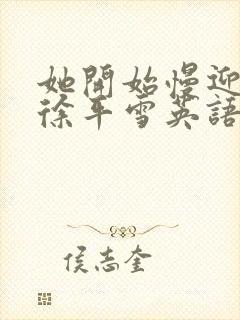 她開始慢迎
徐平雪英語
侯志奎